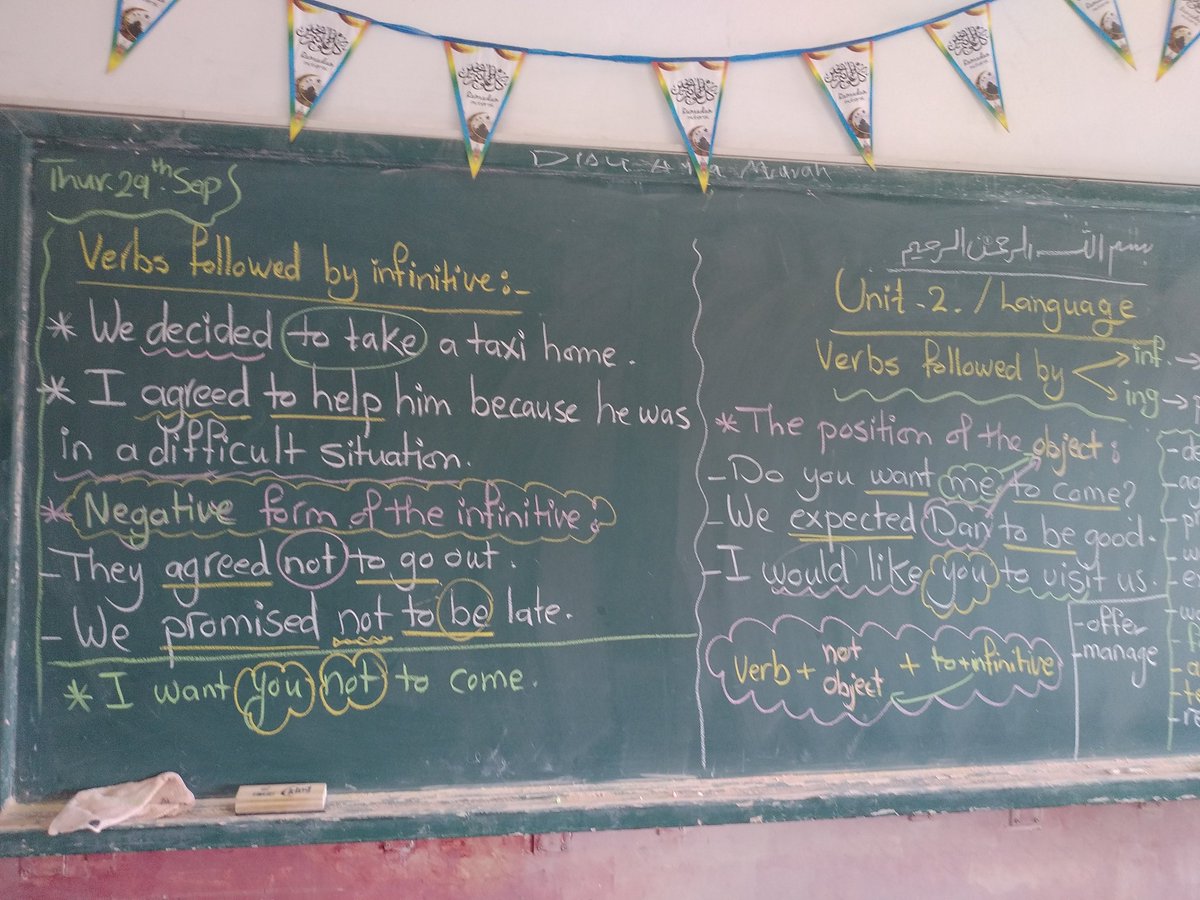 Thur. 29th. Sep
Verbs followed by infinitive:-
* We decided to take a taxi home.
* I agreed to help him because he was
in a difficult situation.
* Negative form of the infinitive:
- They agreed not to go out.
- We promised not to be late.
* I want you not to come.
بسم الله الرحمن الرحيم
Unit - 2. / Language
Verbs followed by → inf. →
→ ing →
* The position of the object:
- Do you want me to come?
- We expected Dan to be good.
- I would like you to visit us.
verb + not object + to + infinitive
- offer
- manage
Ramadan
Ramadan
Ramadan
Ramadan
Ramadan